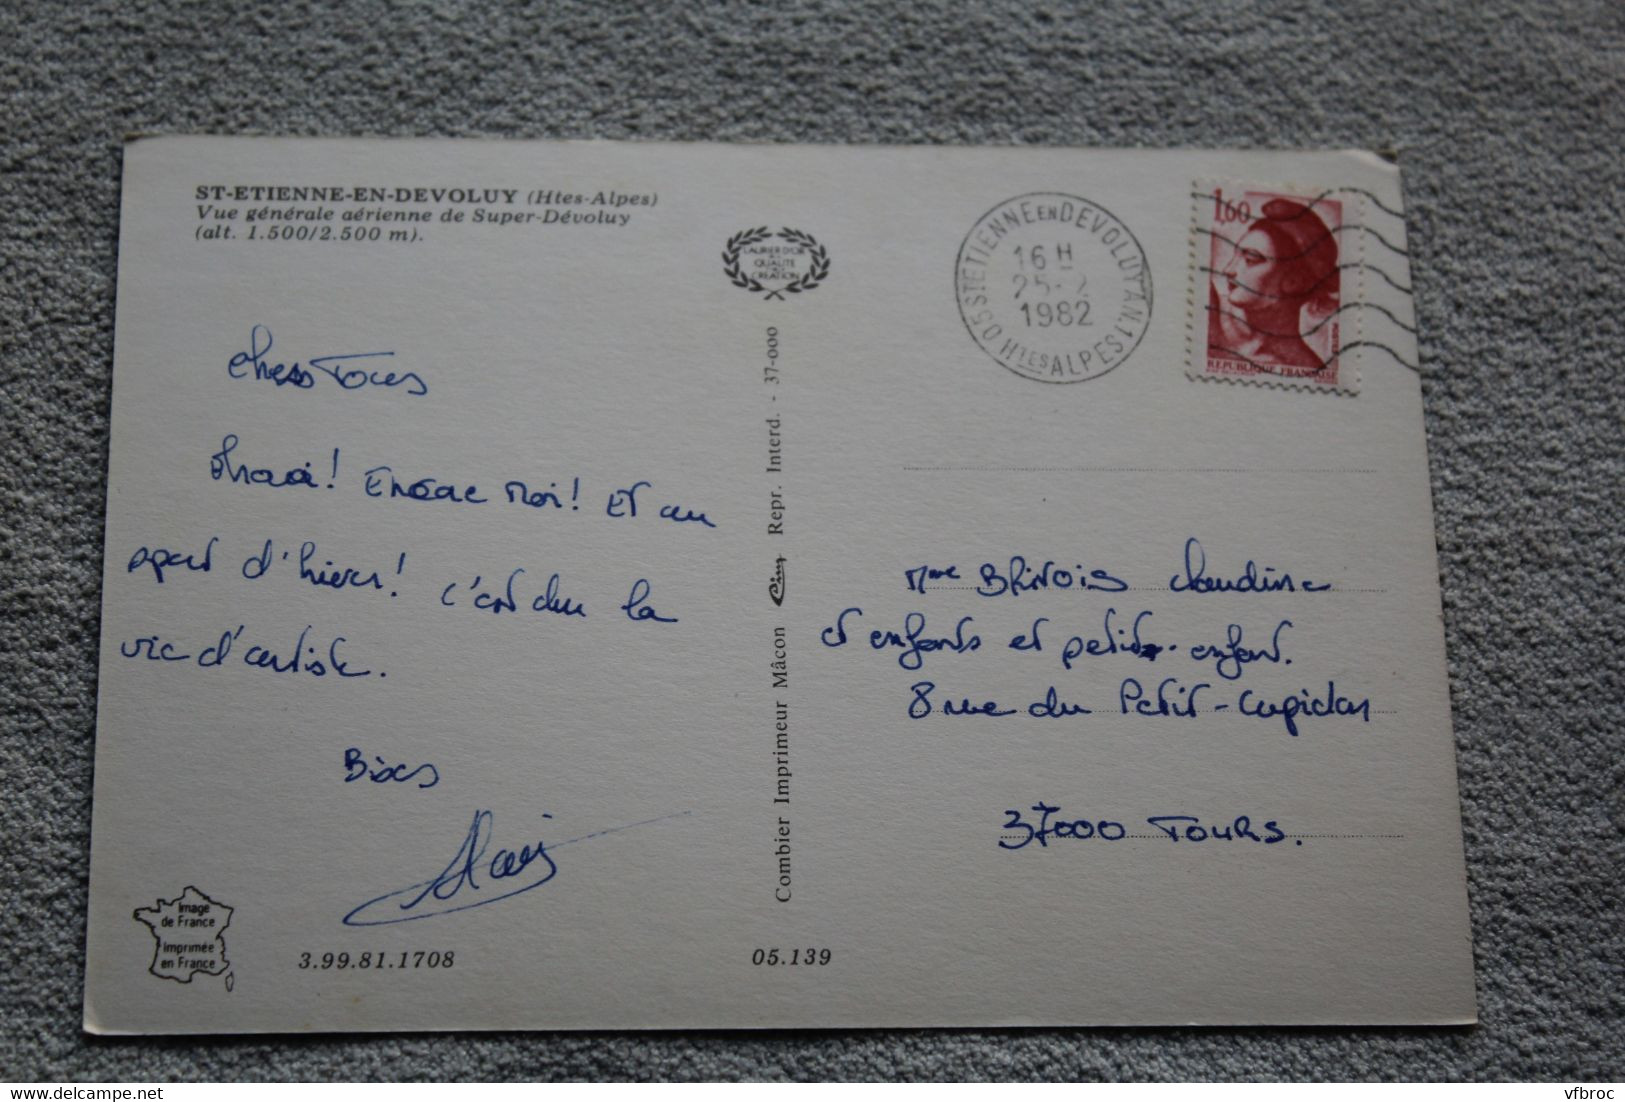 ST-ETIENNE-EN-DEVOLUY (Htes-Alpes)
Vue générale aérienne de Super-Dévoluy
(alt. 1.500/2.500 m).
LAURIER D'OR
QUALITE
CREATION
05 ST ETIENNE EN DEVOLUY A.N.1 HTES ALPES
16 H
25-2
1982
1,60
POSTES
REPUBLIQUE FRANÇAISE
! Encore Moi! Et au
sport d'hiver! C'est du la
vie d'artiste.
Bises
Mme Blinois Claudine
et enfants et petits-enfant.
8 rue du Petit-Cupidon
37000 TOURS.
Combier Imprimeur Mâcon Cim Repr. Interd. - 37-000
Image
de France
imprimée
en France
3.99.81.1708
05.139
vfbroc